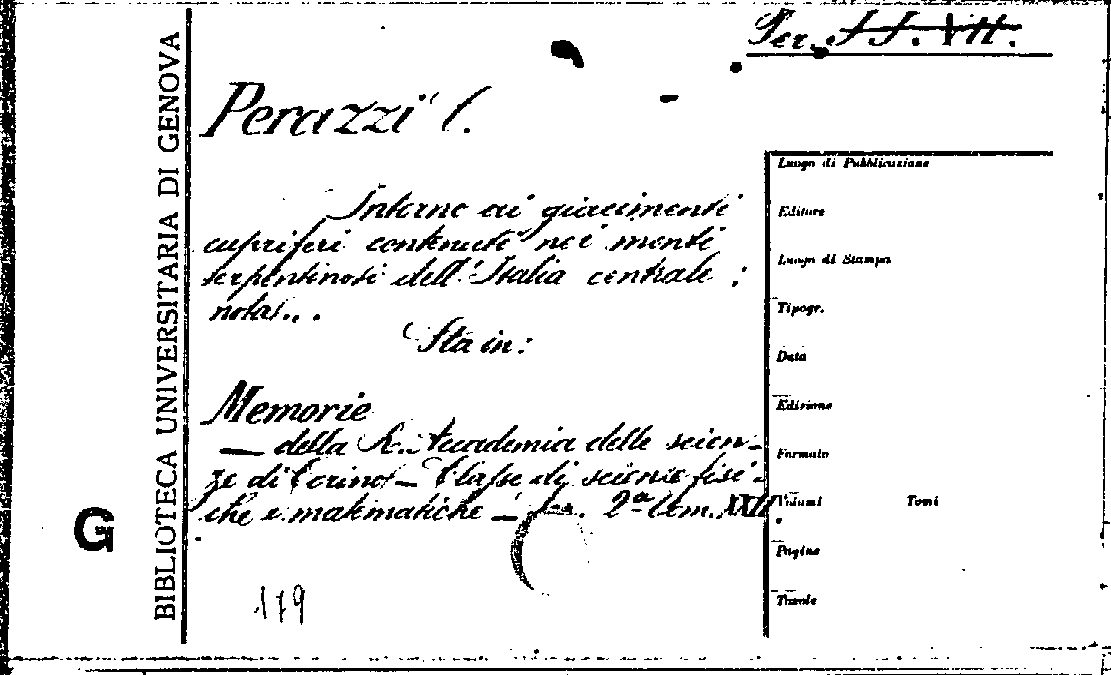 Per. SS. VII.
Perazzi C.
Intorno ai giacimenti
cupriferi contenuti nei monti
serpentinosi dell'Italia centrale :
nota...
Sta in:
Memorie
— della R. Accademia delle scien-
ze di Torino — Classe di scienze fisi-
che e matematiche — Ser. 2ª tom. XXII.
179
BIBLIOTECA UNIVERSITARIA DI GENOVA
G
Luogo di Pubblicazione
Editore
Luogo di Stampa
Tipogr.
Data
Edizione
Formato
Volumi Tomi
Pagine
Tavole